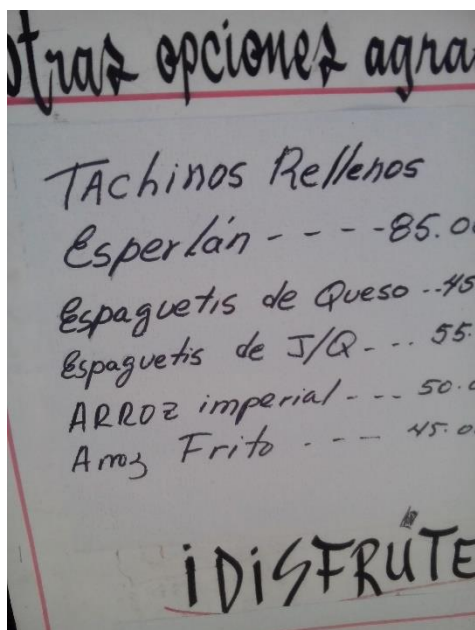 otras opciones agra
TAchinos Rellenos
Esperlán - - - - 85.00
Espaguetis de Queso -- 45
Espaguetis de J/Q - -- 55.
ARROZ imperial - - - 50.0
Arroz Frito - - - - 45.0
¡DISFRÚTE